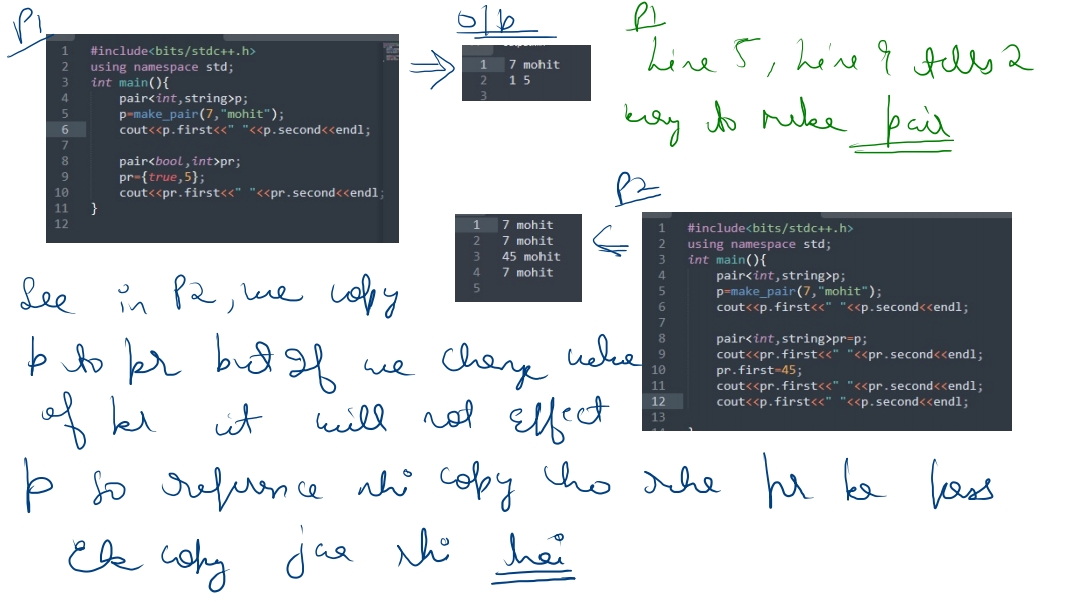 P1
1 #include<bits/stdc++.h>
2 using namespace std;
3 int main(){
4 pair<int,string>p;
5 p=make_pair(7,"mohit");
6 cout<<p.first<<" "<<p.second<<endl;
7
8 pair<bool,int>pr;
9 pr={true,5};
10 cout<<pr.first<<" "<<pr.second<<endl;
11 }
12
⇒
o/p
1 7 mohit
2 1 5
3
P1
Line 5, Line 9 tells 2
way to make pair
P2
1 #include<bits/stdc++.h>
2 using namespace std;
3 int main(){
4 pair<int,string>p;
5 p=make_pair(7,"mohit");
6 cout<<p.first<<" "<<p.second<<endl;
7
8 pair<int,string>pr=p;
9 cout<<pr.first<<" "<<pr.second<<endl;
10 pr.first=45;
11 cout<<pr.first<<" "<<pr.second<<endl;
12 cout<<p.first<<" "<<p.second<<endl;
13
⇐
1 7 mohit
2 7 mohit
3 45 mohit
4 7 mohit
5
See in P2, we copy
p to pr but If we change value
of pr it will not effect
p so reference nhi copy ho rha pr ke pass
Ek copy jaa rhi hai